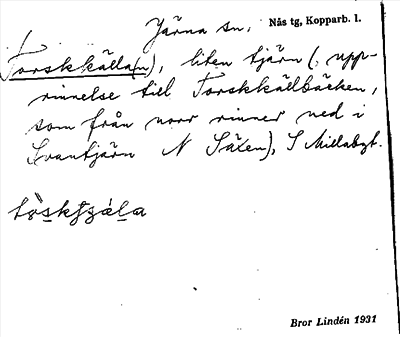 Järna sn. Nås tg, Kopparb. l.
Torskkälla(n), liten tjärn (, upp-
rinnelse till Torskkällbäcken,
som från norr rinner ned i
Svantjärn N Säxen), S Millabgt.
Bror Lindén 1931